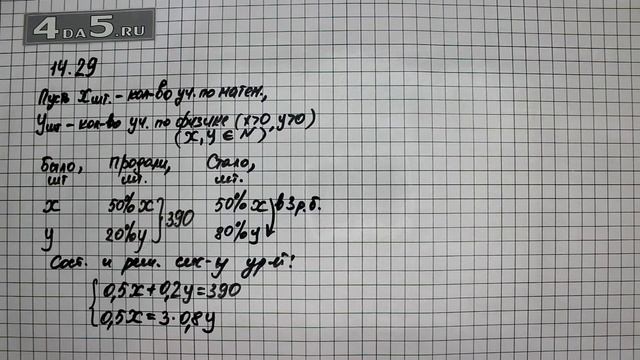 4DA5.RU
14.29
Пусть x шт. - кол-во уч. по матем.,
y шт - кол-во уч. по физике (x>0, y>0)
(x, y ∈ N)
Было, шт Продали, шт. Стало, шт.
x 50% x } 390 50% x в 3 р. б.
y 20% y 80% y
Сост. и реш. сис-у ур-й:
{ 0,5x+0,2y=390
0,5x=3·0,8y